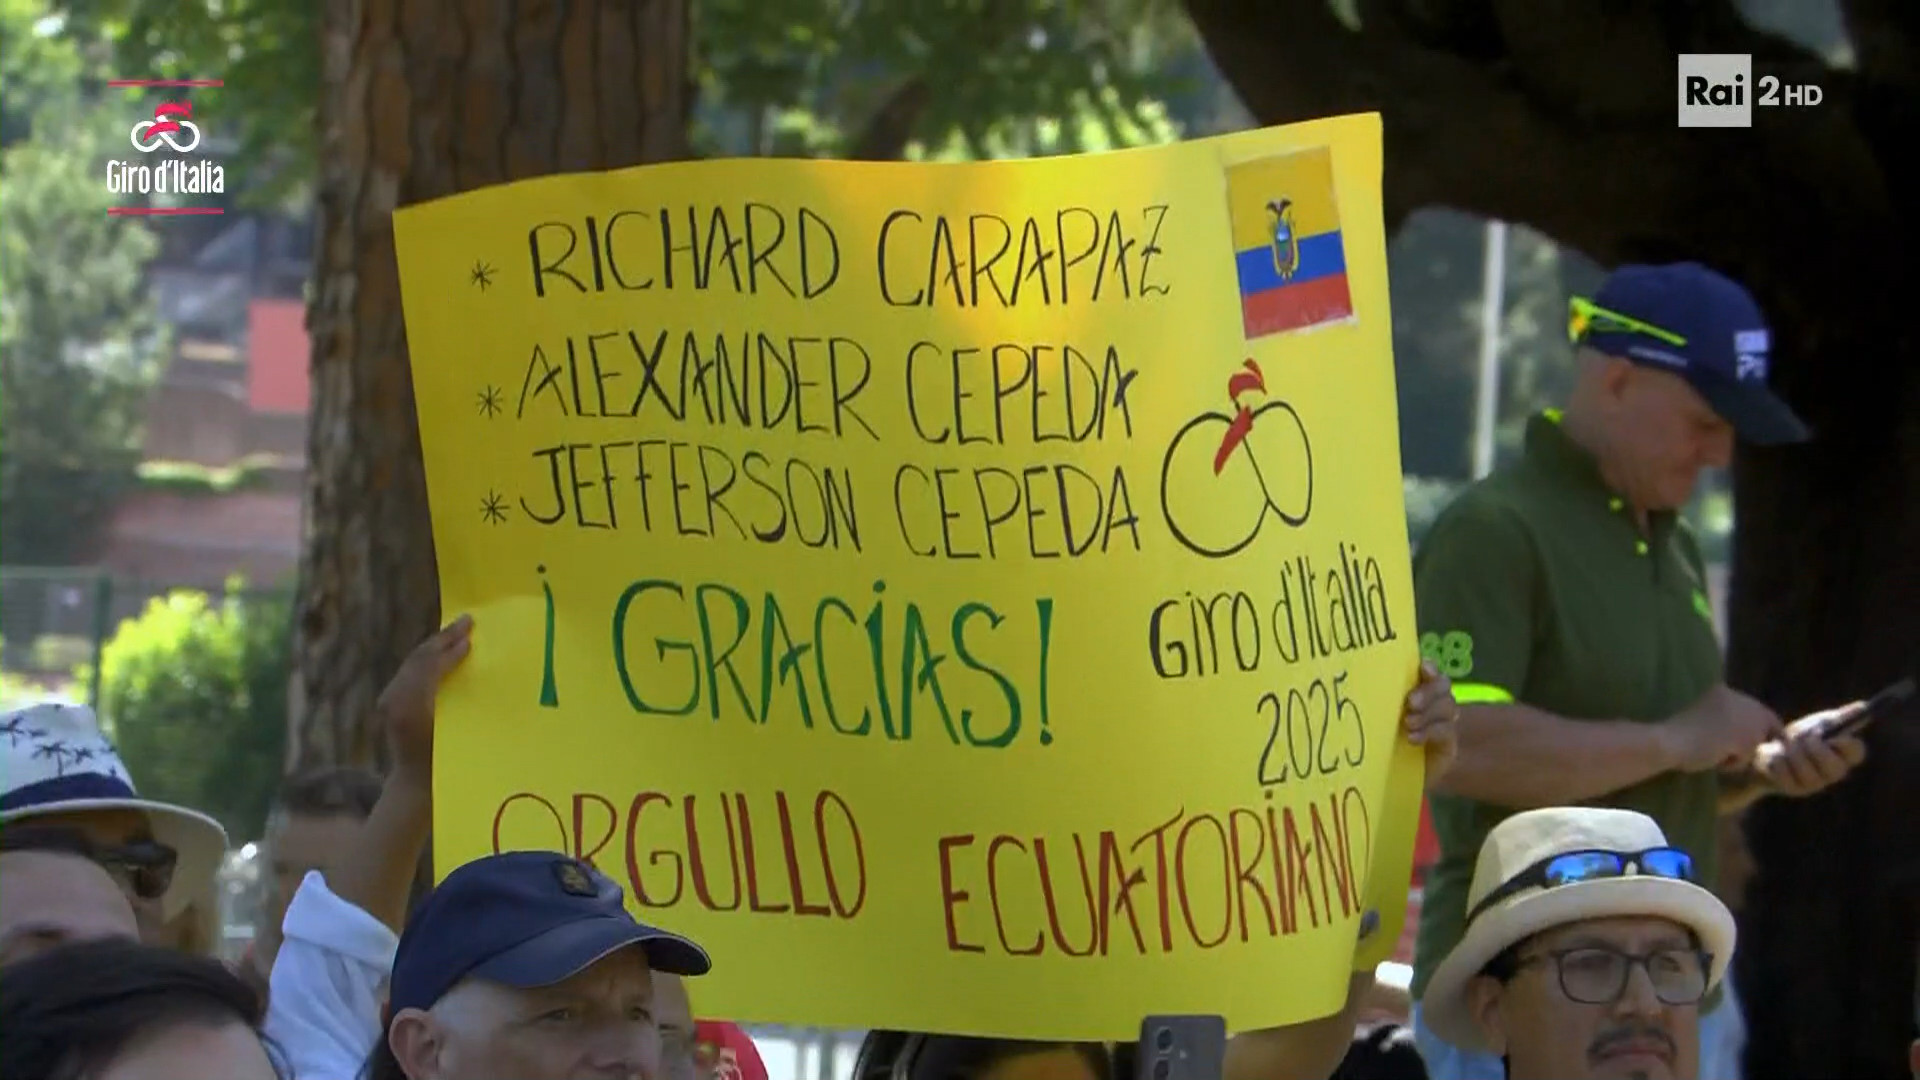 Giro d'Italia
Rai 2HD
* RICHARD CARAPAZ
* ALEXANDER CEPEDA
* JEFFERSON CEPEDA
¡GRACIAS!
Giro d'Italia
2025
ORGULLO ECUATORIANO
88